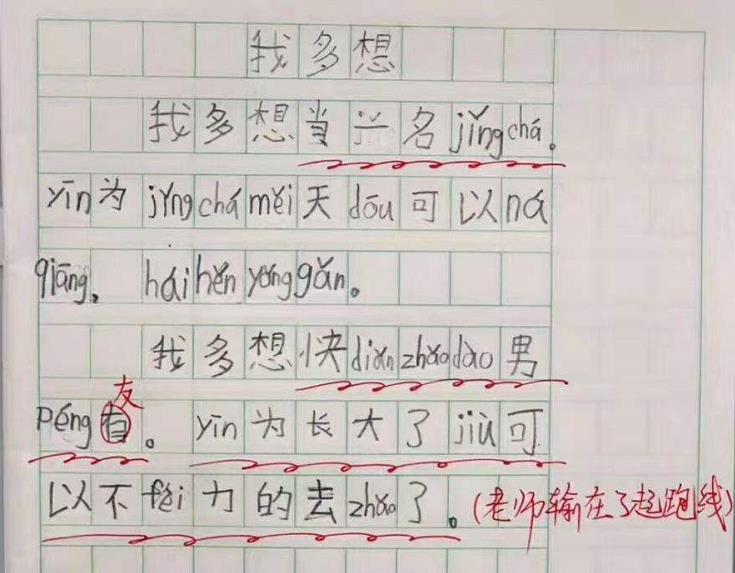 我多想
我多想当一名jǐngchá。
yīn为jǐngchá měi天dōu可以ná
qiāng，hái hěn yǒnggǎn。
我多想快diǎn zhǎodào男
友
péng有。yīn为长大了jiù可
以不fèi力的去zhǎo了。(老师输在了起跑线)